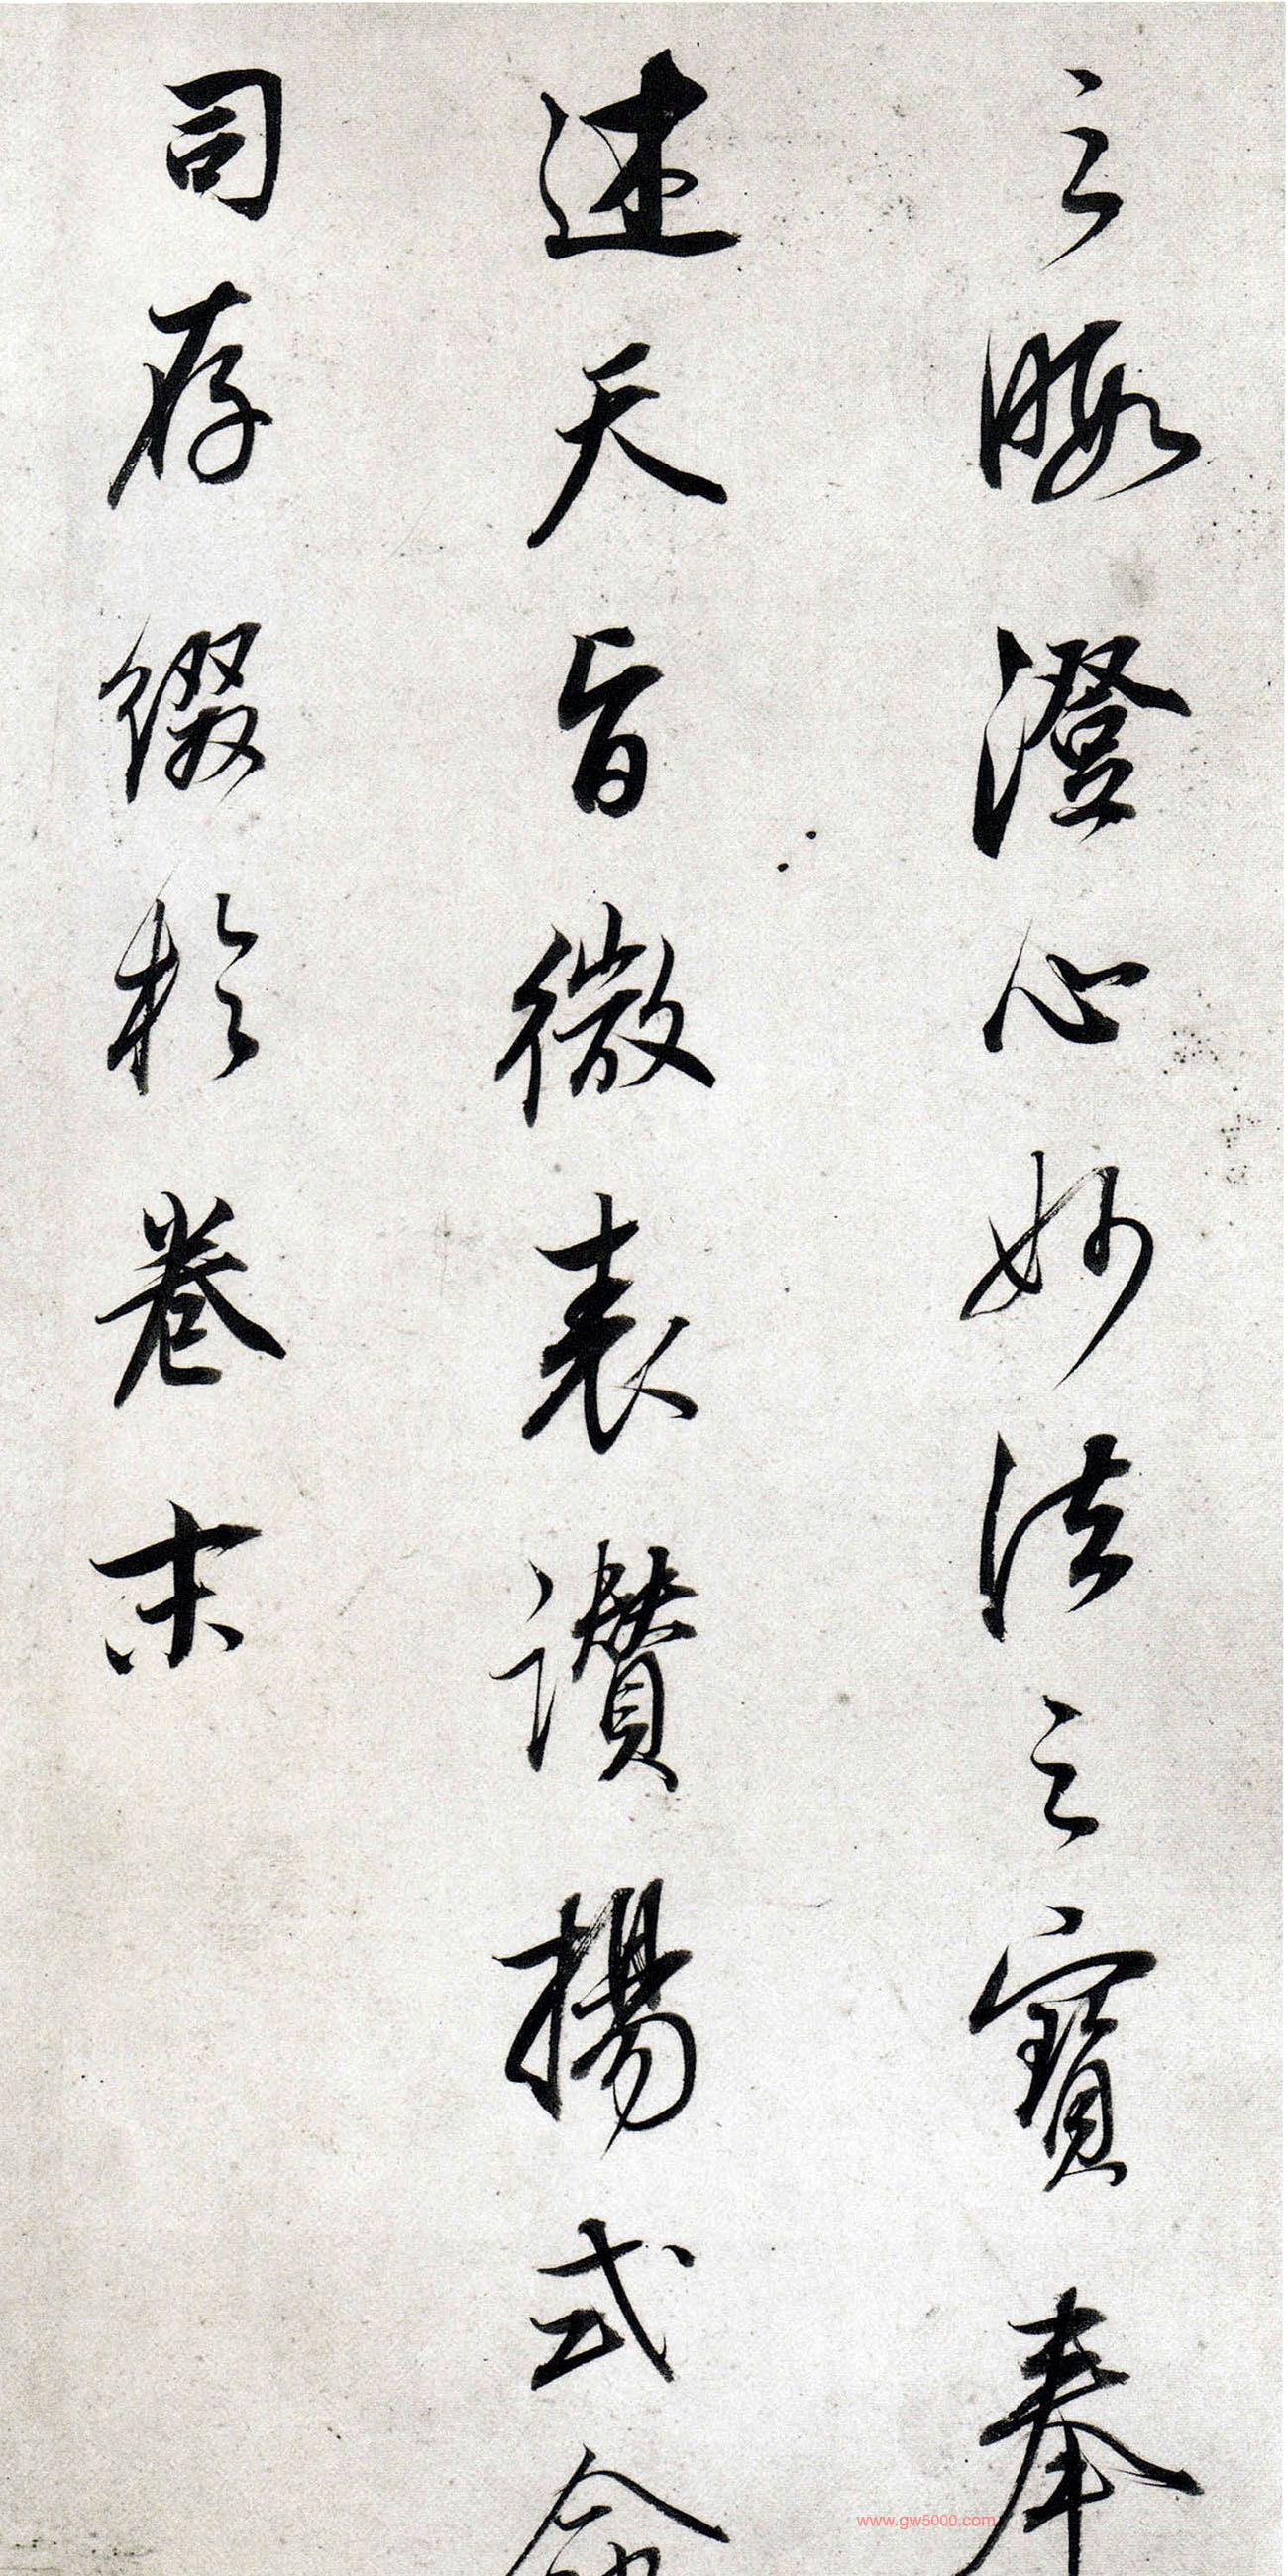 之暇澄心妙法之寶奉
述天旨微表讃揚式命
司存綴於卷末
www.gw5000.com